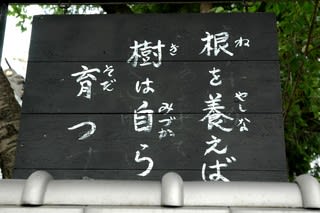 根を養えば
樹は自ら
育つ
ね
やしな
き
みづか
そだ